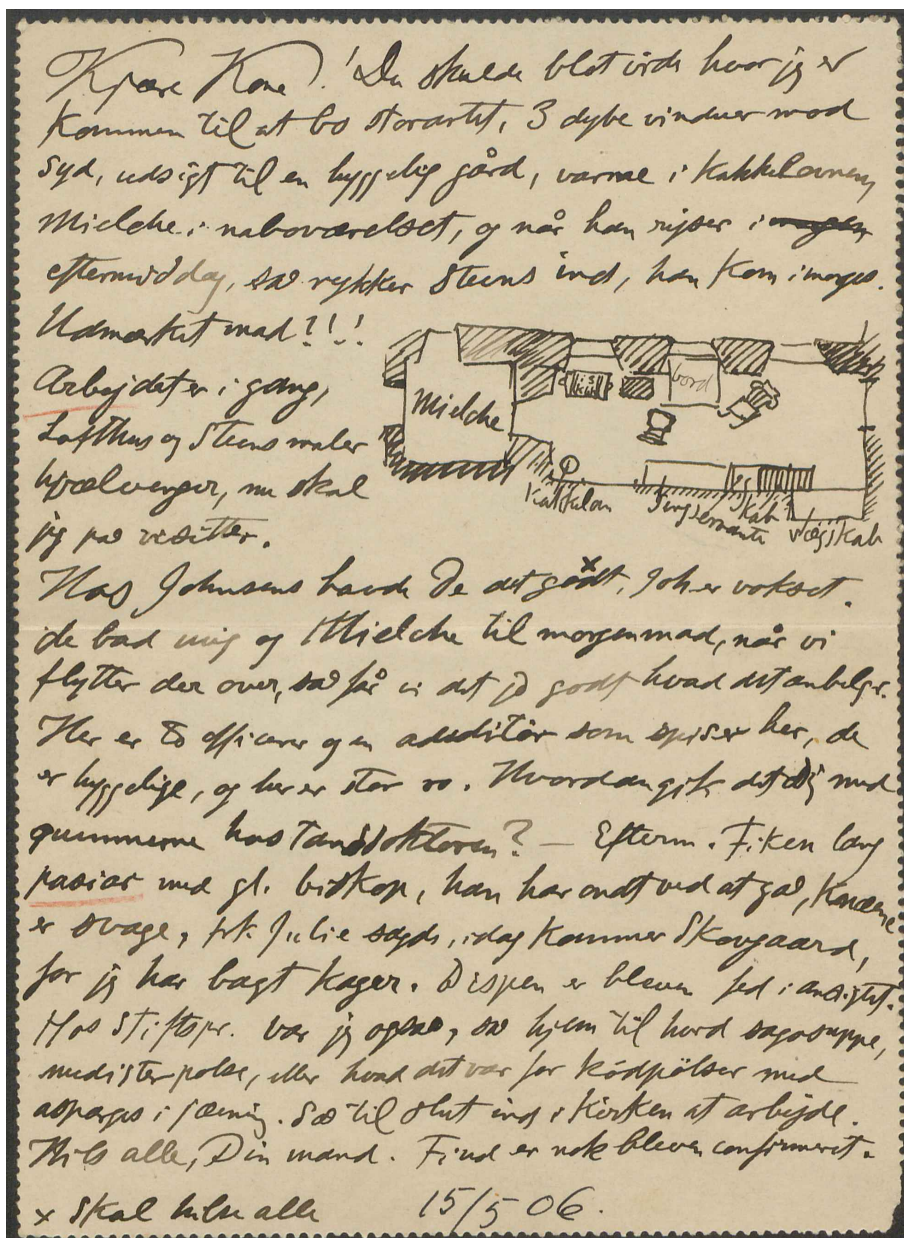 Kjære Kone! Du skulde blot vide hvor jeg er
kommen til at bo storartet, 3 dybe vinduer mod
syd, udsigt til en hyggelig gård, varme i Kakkelovnen,
Mielche i naboværelset, og når han rejser i
eftermiddag, så rykker Steens ind, han kom imorges.
Udmærket mad?!!!
Arbejdet er i gang,
Lofthus og Steens maler
hjælvenger, nu skal
jeg på visitter.
Mielche
bord
Kakkelov
Skab
vægskab
Hos Johnsens havde De det godt x, Joh er vokset.
de bad mig og Mielche til morgenmad, når vi
flytter der over, så får vi det jo godt hvad det anbelgr.
Her er to officerer og en auditør som spiser her, de
er hyggelige, og her er stor ro. Hvordan gik det dig med
gummerne hos Tanddoktoren? — Efterm. Fik en lang
pasiar med gl. biskop, han har ondt ved at gå, Knæene
er svage, frk. Julie sagde, idag kommer Skovgaard,
for jeg har bagt kager. Bispen er bleven fed i ansigtet.
Hos Stiftspr. var jeg også, så hjem til hvid sagosuppe,
medisterpølse, eller hvad det var for Kødpølser med
asparges i jævning. Så til slut ind i Kirken at arbejde.
Hils alle, Din mand. Find er nok bleven confirmeret.
x Skal hilse alle 15/5 06.